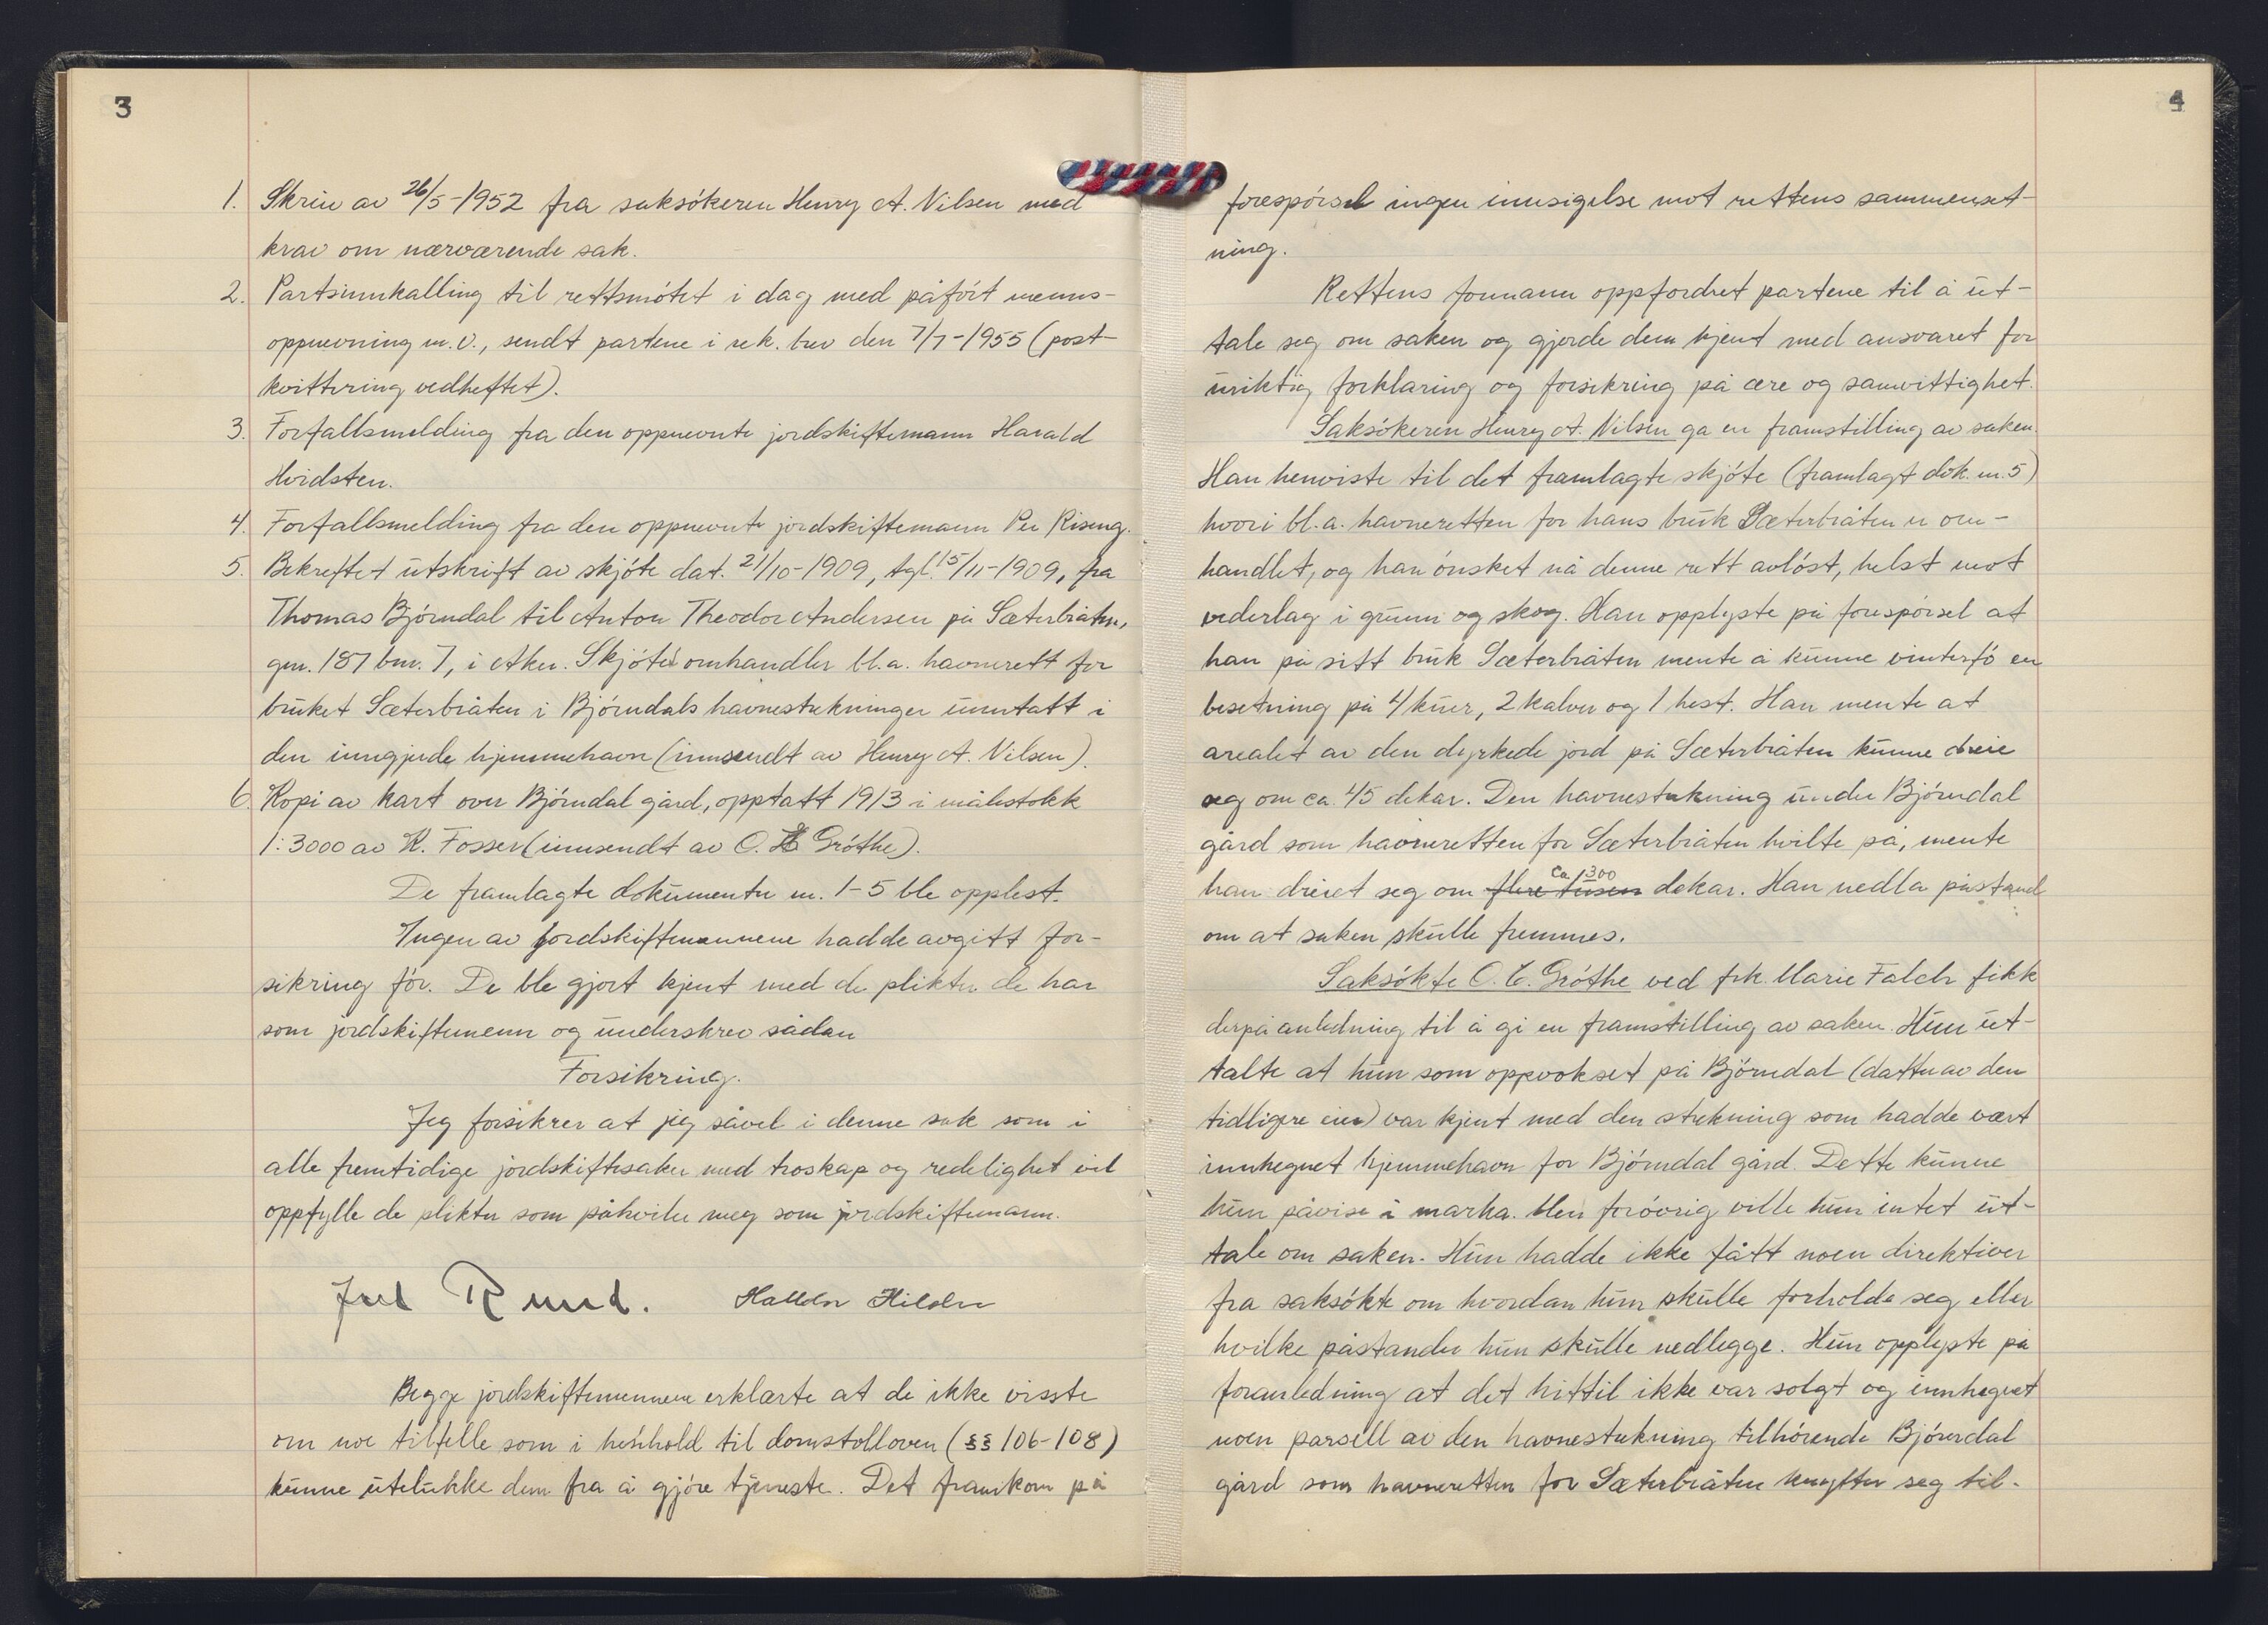 3
1. Skriv av 26/5-1952 fra saksøkeren Henry A. Nilsen med
krav om nærværende sak.
2. Partsinnkalling til rettsmøtet i dag med påført menns-
oppnevning m.v., sendt partene i rek. brev den 7/7-1955 (post-
kvittering vedheftet).
3. Forfallsmelding fra den oppnevnte jordskiftemann Harald
Hvidsten.
4. Forfallsmelding fra den oppnevnte jordskiftemann Per Riseng.
5. Bekreftet utskrift av skjøte dat. 21/10-1909, tgl. 15/11-1909, fra
Thomas Bjørndal til Anton Theodor Andersen på Sæterbråten,
gnr. 187 bnr. 7, i Aker. Skjøtet omhandler bl.a. havnerett for
bruket Sæterbråten i Bjørndals havnestrekninger unntatt i
den inngjerde hjemmehavn (innsendt av Henry A. Nilsen).
6. Kopi av kart over Bjørndal gård, opptatt 1913 i målestokk
1:3000 av K. Fosser (innsendt av O. Grøthe).
De framlagte dokumenter nr. 1-5 ble opplest.
Ingen av jordskiftemennene hadde avgitt for-
sikring før. De ble gjort kjent med de plikter de har
som jordskiftemenn og underskrev sådan
Forsikring.
Jeg forsikrer at jeg såvel i denne sak som i
alle fremtidige jordskiftesaker med troskap og redelighet vil
oppfylle de plikter som påhviler meg som jordskiftemann.
Rund. Halldor
Begge jordskiftemennene erklærte at de ikke visste
om noe tilfelle som i henhold til domstolloven (§§ 106-108)
kunne utelukke dem fra å gjøre tjeneste. Det framkom på
4
forespørsel ingen innsigelse mot rettens sammenset-
ning.
Rettens formann oppfordret partene til å ut-
tale seg om saken og gjorde dem kjent med ansvaret for
uriktig forklaring og forsikring på ære og samvittighet.
Saksøkeren Henry A. Nilsen ga en framstilling av saken.
Han henviste til det framlagte skjøte (framlagt dok. nr. 5)
hvori bl.a. havneretten for hans bruk Sæterbråten er om-
handlet, og han ønsket nå denne rett avløst, helst mot
vederlag i grunn og skog. Han opplyste på forespørsel at
han på sitt bruk Sæterbråten mente å kunne vinterfø en
besetning på 4 kuer, 2 kalver og 1 hest. Han mente at
arealet av den dyrkede jord på Sæterbråten kunne dreie
seg om ca. 45 dekar. Den havnestrekning under Bjørndal
gård som havneretten for Sæterbråten hvilte på, mente
han dreiet seg om flere tusen ca 1300 dekar. Han nedla påstand
om at saken skulle fremmes.
Saksøkte O. E. Grøthe ved frk. Marie Falch fikk
derpå anledning til å gi en framstilling av saken. Hun ut-
talte at hun som oppvokset på Bjørndal (datter av den
tidligere eier) var kjent med den strekning som hadde vært
innhegnet hjemmehavn for Bjørndal gård. Dette kunne
hun påvise i marka. Men forøvrig ville hun intet ut-
tale om saken. Hun hadde ikke fått noen direktiver
fra saksøkte om hvordan hun skulle forholde seg eller
hvilke påstander hun skulle nedlegge. Hun opplyste på
foranledning at det hittil ikke var solgt og innhegnet
noen parsell av den havnestrekning tilhørende Bjørndal
gård som havneretten for Sæterbråten knytter seg til.